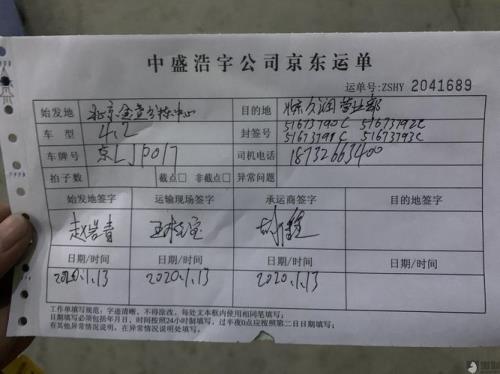 中盛浩宇公司京东运单
运单号:ZSHY 2041689
始发地 北京金盏分拣中心 目的地 营业部
车型 4.2 封签号 51673790C 51673792C
51673798C 51673793C
车牌号 京LJP017 司机电话 18732663400
拍子数 截点□ 非截点□ 异常问题
始发地签字 运输现场签字 承运商签字 目的地签字
日期/时间 日期/时间 日期/时间 日期/时间
2020.1.13 2020.1.13 2020.1.13
工作单填写规范：字迹清晰、不得涂改，每处文本框内使用相同笔填写；
日期填写必须包括年月日，时间按照24小时制填写，过半夜0点应按照第二日日期填写；
有其他异常情况说明，在异常情况说明处填写。